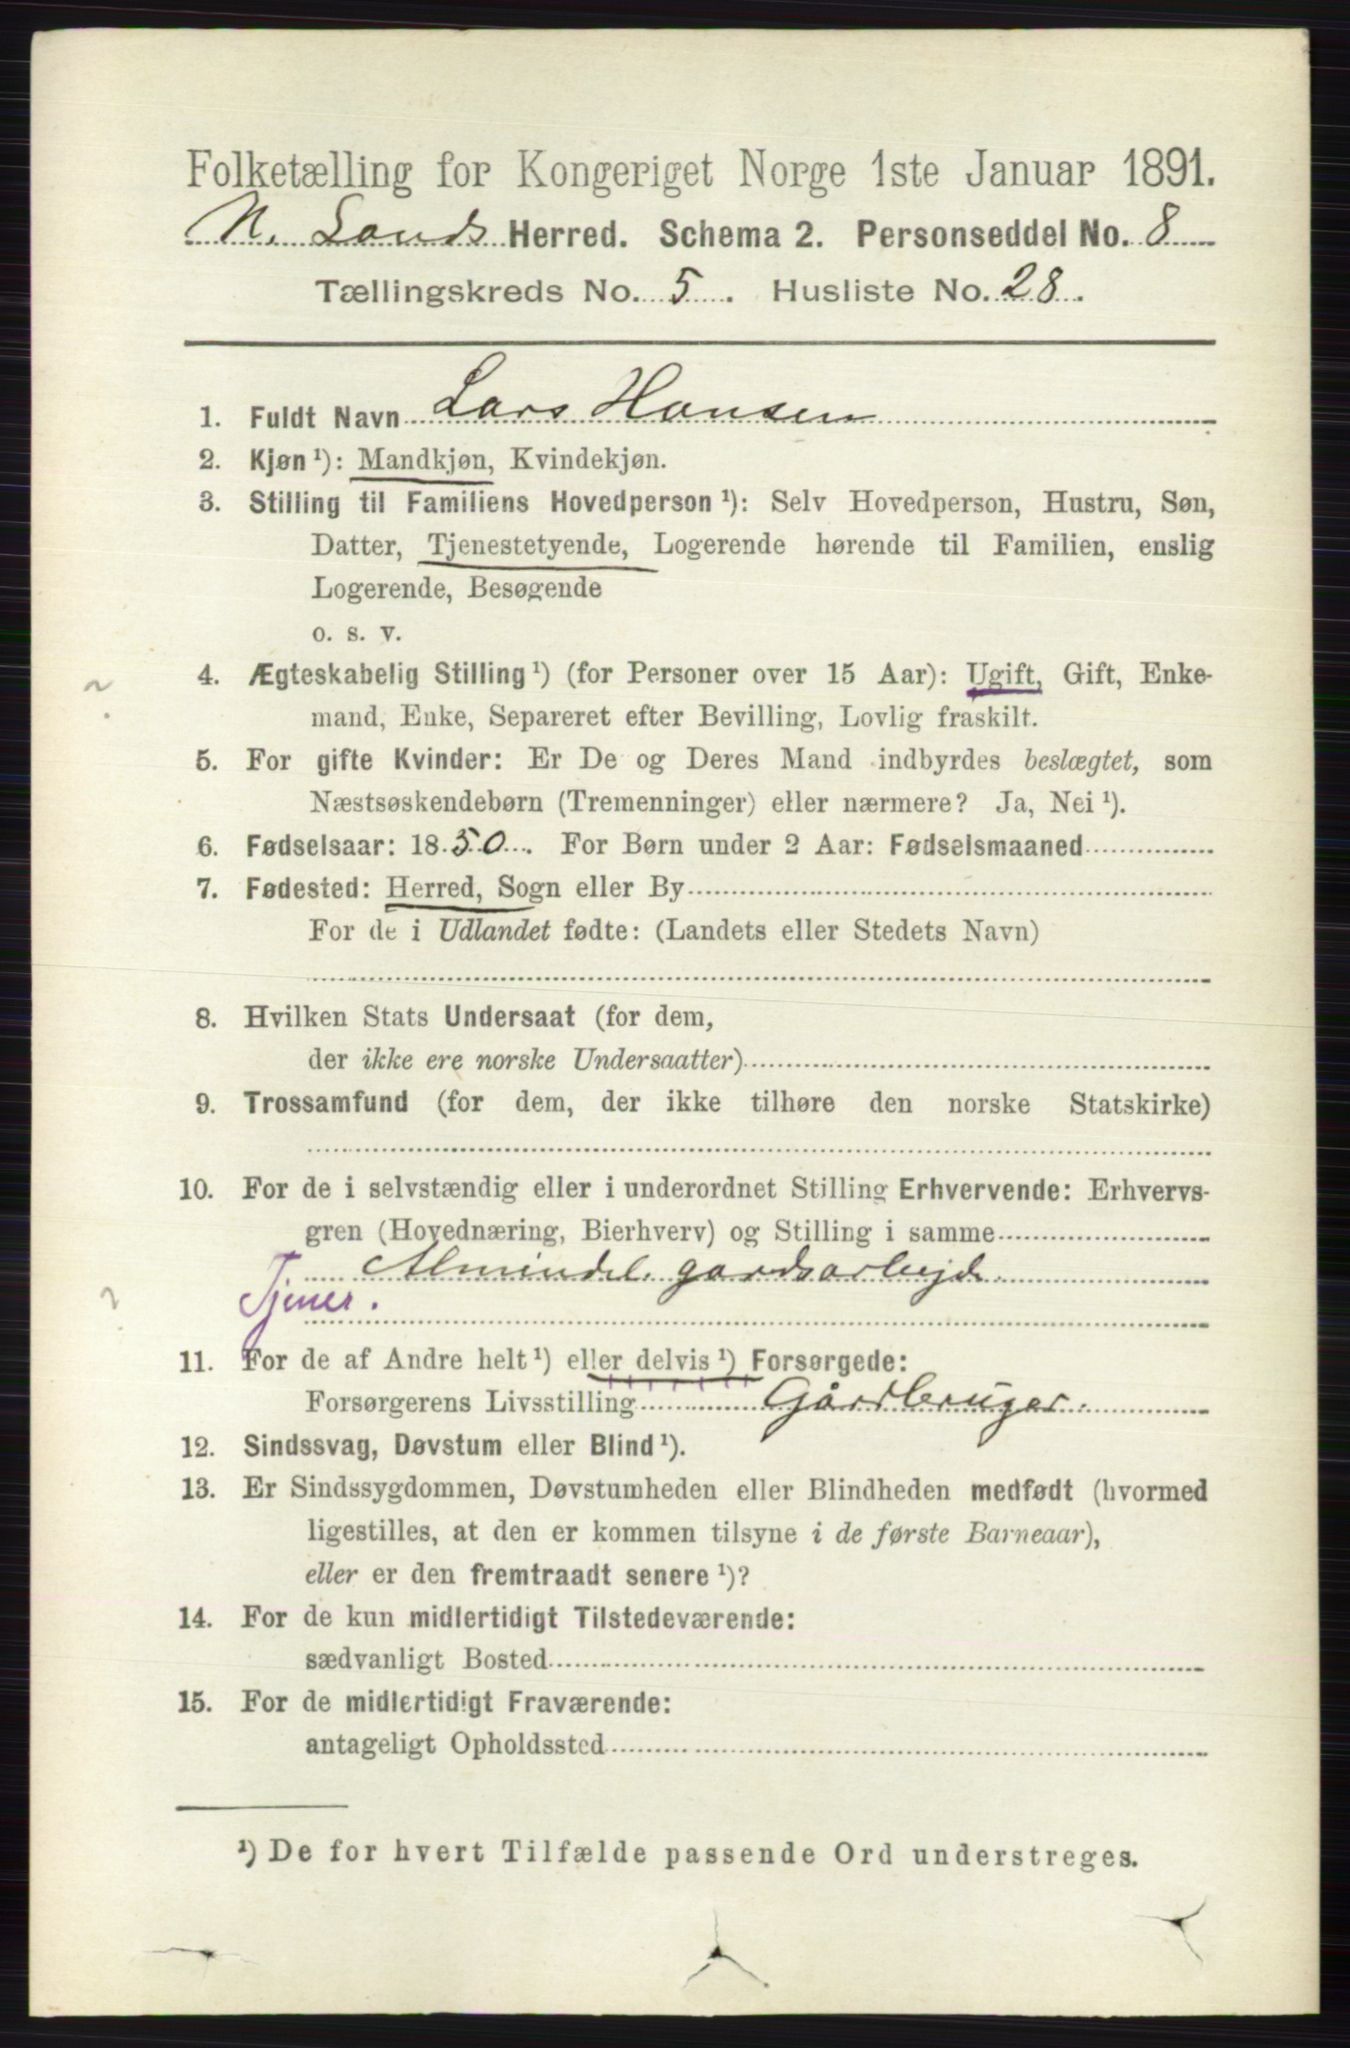 Folketælling for Kongeriget Norge 1ste Januar 1891.
N. Lands Herred. Schema 2. Personseddel No. 8
Tællingskreds No. 5. Husliste No. 28.
1. Fuldt Navn Lars Hansen
2. Kjøn ¹): Mandkjøn, Kvindekjøn.
3. Stilling til Familiens Hovedperson ¹): Selv Hovedperson, Hustru, Søn,
Datter, Tjenestetyende, Logerende hørende til Familien, enslig
Logerende, Besøgende
o. s. v.
4. Ægteskabelig Stilling ¹) (for Personer over 15 Aar): Ugift, Gift, Enke-
?
mand, Enke, Separeret efter Bevilling, Lovlig fraskilt.
5. For gifte Kvinder: Er De og Deres Mand indbyrdes beslægtet, som
Næstsøskendebørn (Tremenninger) eller nærmere? Ja, Nei ¹).
6. Fødselsaar: 1850. For Børn under 2 Aar: Fødselsmaaned
7. Fødested: Herred, Sogn eller By
For de i Udlandet fødte: (Landets eller Stedets Navn)
8. Hvilken Stats Undersaat (for dem,
der ikke ere norske Undersaatter)
9. Trossamfund (for dem, der ikke tilhøre den norske Statskirke)
10. For de i selvstændig eller i underordnet Stilling Erhvervende: Erhvervs-
gren (Hovednæring, Bierhverv) og Stilling i samme
Almindel. gardsarbejde
?
Tjener.
11. For de af Andre helt ¹) eller delvis ¹) Forsørgede:
Forsørgerens Livsstilling Gårdbruger.
12. Sindssvag, Døvstum eller Blind ¹).
13. Er Sindssygdommen, Døvstumheden eller Blindheden medfødt (hvormed
ligestilles, at den er kommen tilsyne i de første Barneaar),
eller er den fremtraadt senere ¹)?
14. For de kun midlertidigt Tilstedeværende:
sædvanligt Bosted
15. For de midlertidigt Fraværende:
antageligt Opholdssted
¹) De for hvert Tilfælde passende Ord understreges.